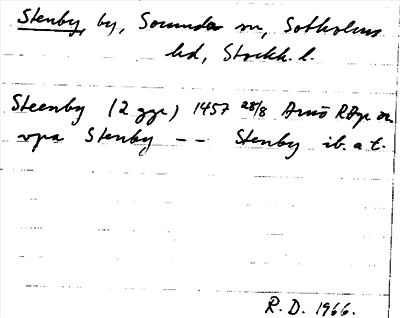 Stenby, by, Sorunda sn, Sotholms
hd, Stockh. l.
Steenby (2 ggr) 1457 28/8 Arnö RAp or.
vpa Stenby -- Stenby ib. a.t.
R. D. 1966.